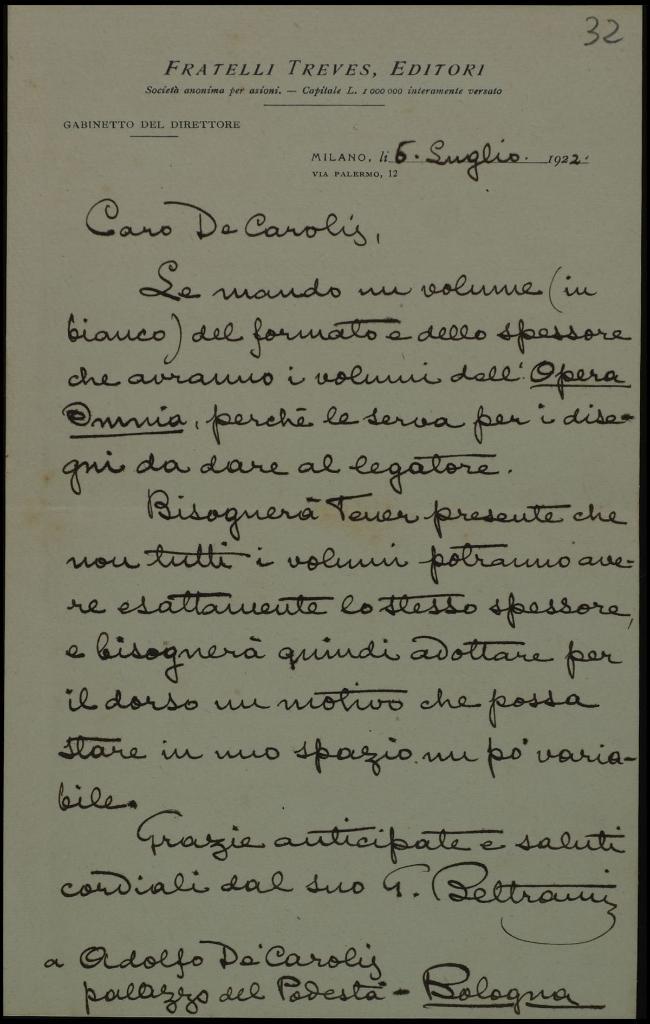 32
FRATELLI TREVES, EDITORI
Società anonima per azioni. — Capitale L. 1 000 000 interamente versato
GABINETTO DEL DIRETTORE
MILANO, lì 5. Luglio. 1922.
VIA PALERMO, 12
Caro De Carolis,
Le mando un volume (in
bianco) del formato e dello spessore
che avranno i volumi dell'Opera
Omnia, perchè le serva per i dise-
gni da dare al legatore.
Bisognerà tener presente che
non tutti i volumi potranno ave-
re esattamente lo stesso spessore,
e bisognerà quindi adottare per
il dorso un motivo che possa
stare in uno spazio un pò variа-
bile.
Grazie anticipate e saluti
cordiali dal suo G. Beltrami
a Adolfo De Carolis
palazzo del Podestà - Bologna